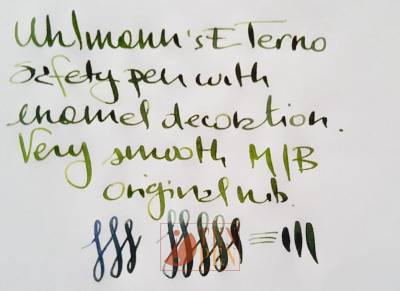 Uhlmann's ETerno
Safety pen with
enamel decoration.
Very smooth M/B
original nib.